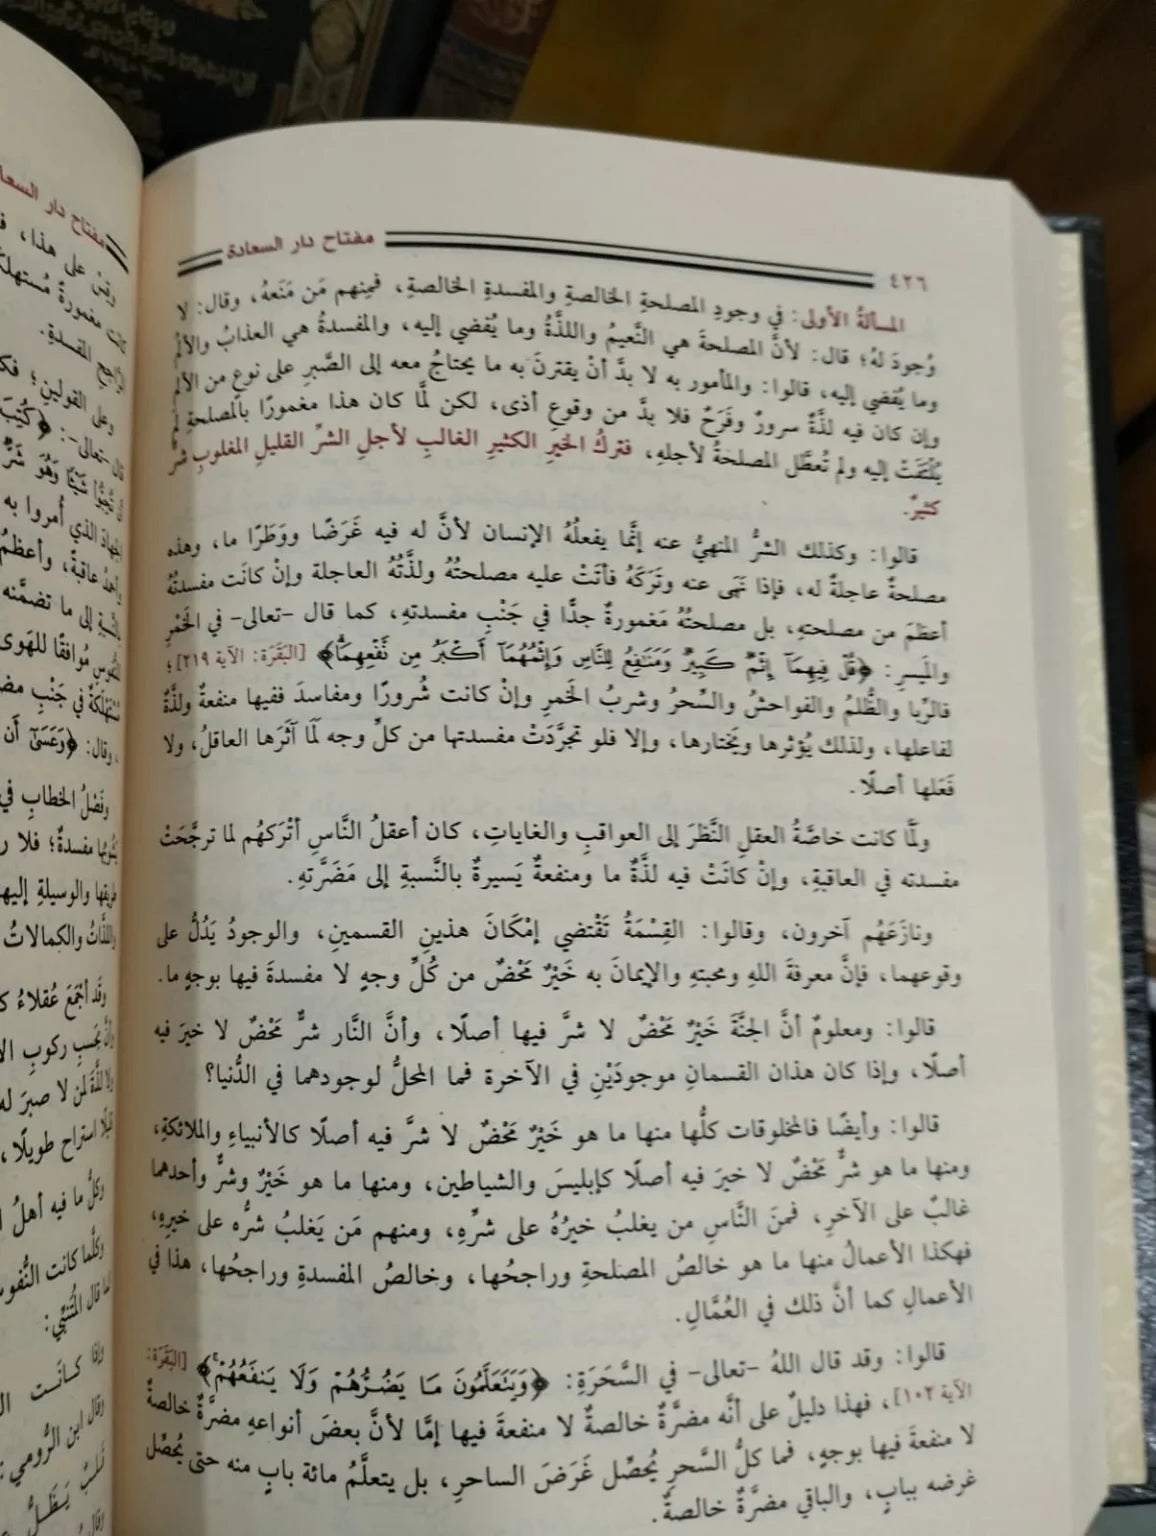 ٤٢٦
مفتاح دار السعادة
المسألةُ الأولى: في وجودِ المصلحةِ الخالصةِ والمفسدةِ الخالصةِ، فمِنهم مَن مَنَعهُ، وقال: لا
وُجودَ لهُ؛ قال: لأنَّ المصلحةَ هي النَّعيمُ واللذَّةُ وما يُفضي إليه، والمفسدةُ هي العذابُ والألمُ
وما يُفضي إليه، قالوا: والمأمور به لا بدَّ أنْ يقترنَ به ما يحتاجُ معه إلى الصَّبرِ على نوعٍ من الألمِ
وإن كان فيه لذَّةٌ سرورٌ وفَرَحٌ فلا بدَّ من وقوعِ أذى، لكن لمَّا كان هذا مغمورًا بالمصلحةِ لم
يُلْتَفَتْ إليه ولم تُعطَّل المصلحةُ لأجلهِ، فتركُ الخيرِ الكثيرِ الغالبِ لأجلِ الشرِّ القليلِ المغلوبِ شرٌّ
كثيرٌ.
قالوا: وكذلك الشرُّ المنهيُّ عنه إنَّما يفعلُهُ الإنسان لأنَّ له فيه غَرَضًا ووَطَرًا ما، وهذه
مصلحةٌ عاجلةٌ له، فإذا نَهَى عنه وتَرَكَهُ فاتَتْ عليه مصلحتُهُ ولذَّتُهُ العاجلة وإنْ كانَت مفسدتُهُ
أعظمَ من مصلحتهِ، بل مصلحتُهُ مَغمورةٌ جدًّا في جَنْبِ مفسدتهِ، كما قال -تعالى- في الخَمْرِ
والميَسرِ: ﴿قُلْ فِيهِمَآ إِثْمٌ كَبِيرٌ وَمَنَٰفِعُ لِلنَّاسِ وَإِثْمُهُمَآ أَكْبَرُ مِن نَّفْعِهِمَا﴾ [البَقَرَة: الآية ٢١٩]؛
فالرِّبا والظُّلمُ والفواحشُ والسِّحرُ وشربُ الخمرِ وإنْ كانت شُرورًا ومفاسدَ ففيها منفعةٌ ولذَّةٌ
لفاعلها، ولذلك يُؤثرها ويَختارها، وإلا فلو تجرَّدَتْ مفسدتها من كلِّ وجه لَمَا آثَرَها العاقلُ، ولا
فَعَلها أصلًا.
ولَمَّا كانت خاصَّةُ العقلِ النَّظرَ إلى العواقبِ والغاياتِ، كان أعقلُ النَّاسِ أتْرَكهُم لما ترجَّحَتْ
مفسدته في العاقبةِ، وإنْ كانَتْ فيه لذَّةٌ ما ومنفعةٌ يَسيرةٌ بالنَّسبةِ إلى مَضَرَّتهِ.
ونازَعَهُم آخرون، وقالوا: القِسْمَةُ تَقْتضي إمْكَانَ هذينِ القسمينِ، والوجودُ يَدُلُّ على
وقوعهما، فإنَّ معرفةَ اللهِ ومحبتهِ والإيمانَ به خَيْرٌ مَحْضٌ من كُلِّ وجهٍ لا مفسدةَ فيها بوجهٍ ما.
قالوا: ومعلومٌ أنَّ الجنَّةَ خَيْرٌ مَحْضٌ لا شرَّ فيها أصلًا، وأنَّ النَّار شرٌّ مَحْضٌ لا خيرَ فيه
أصلًا، وإذا كان هذان القسمانِ موجودَيْنِ في الآخرة فما المحلُّ لوجودهما في الدُّنيا؟
قالوا: وأيضًا فالمخلوقات كلُّها منها ما هو خَيْرٌ مَحْضٌ لا شرَّ فيه أصلًا كالأنبياءِ والملائكةِ،
ومنها ما هو شرٌّ مَحْضٌ لا خيرَ فيه أصلًا كإبليسَ والشياطين، ومنها ما هو خَيْرٌ وشرٌّ وأحدهما
غالبٌ على الآخرِ، فمنَ النَّاسِ من يغلبُ خيرُهُ على شرِّهِ، ومنهم مَن يَغلبُ شرُّه على خيرِهِ،
فهكذا الأعمالُ منها ما هو خالصُ المصلحةِ وراجحُها، وخالصُ المفسدةِ وراجحُها، هذا في
الأعمالِ كما أنَّ ذلك في العُمَّالِ.
قالوا: وقد قال اللهُ -تعالى- في السَّحَرَةِ: ﴿وَيَتَعَلَّمُونَ مَا يَضُرُّهُمْ وَلَا يَنفَعُهُمْ﴾ [البَقَرَة:
الآية ١٠٢]، فهذا دليلٌ على أنَّه مضرَّةٌ خالصةٌ لا منفعةَ فيها إمَّا لأنَّ بعضَ أنواعهِ مضرَّةٌ خالصةٌ
لا منفعةَ فيها بوجهٍ، فما كلُّ السَّحرِ يُحصِّل غَرَضَ الساحرِ، بل يتعلَّمُ مائة بابٍ منه حتى يُحصِّل
غرضه ببابٍ، والباقي مضرَّةٌ خالصةٌ.
مفتاح دار
على هذا،
المفسدةِ.
وعلى القولينِ؛
الذي أُمروا به
عاقبةً، وأعظمُ
إلى ما تضمَّنه
مُوافقًا للهَوى
في جَنْبِ
وقال: ﴿وَعَسَىٰٓ أَن
وفَصْلُ الخطابِ في
مفسدةٌ؛ فلا
طريقها والوسيلةِ إليها
والكمالاتُ
وقَد أجْمَعَ عُقلاءُ
ركوبِ
لا صبرَ له
استراح طويلًا،
وكلُّ ما فيه أهلُ
وكلَّما كانت
قال المُتنبِّي:
وإذا كانَت
وقال ابن الرُّومي: